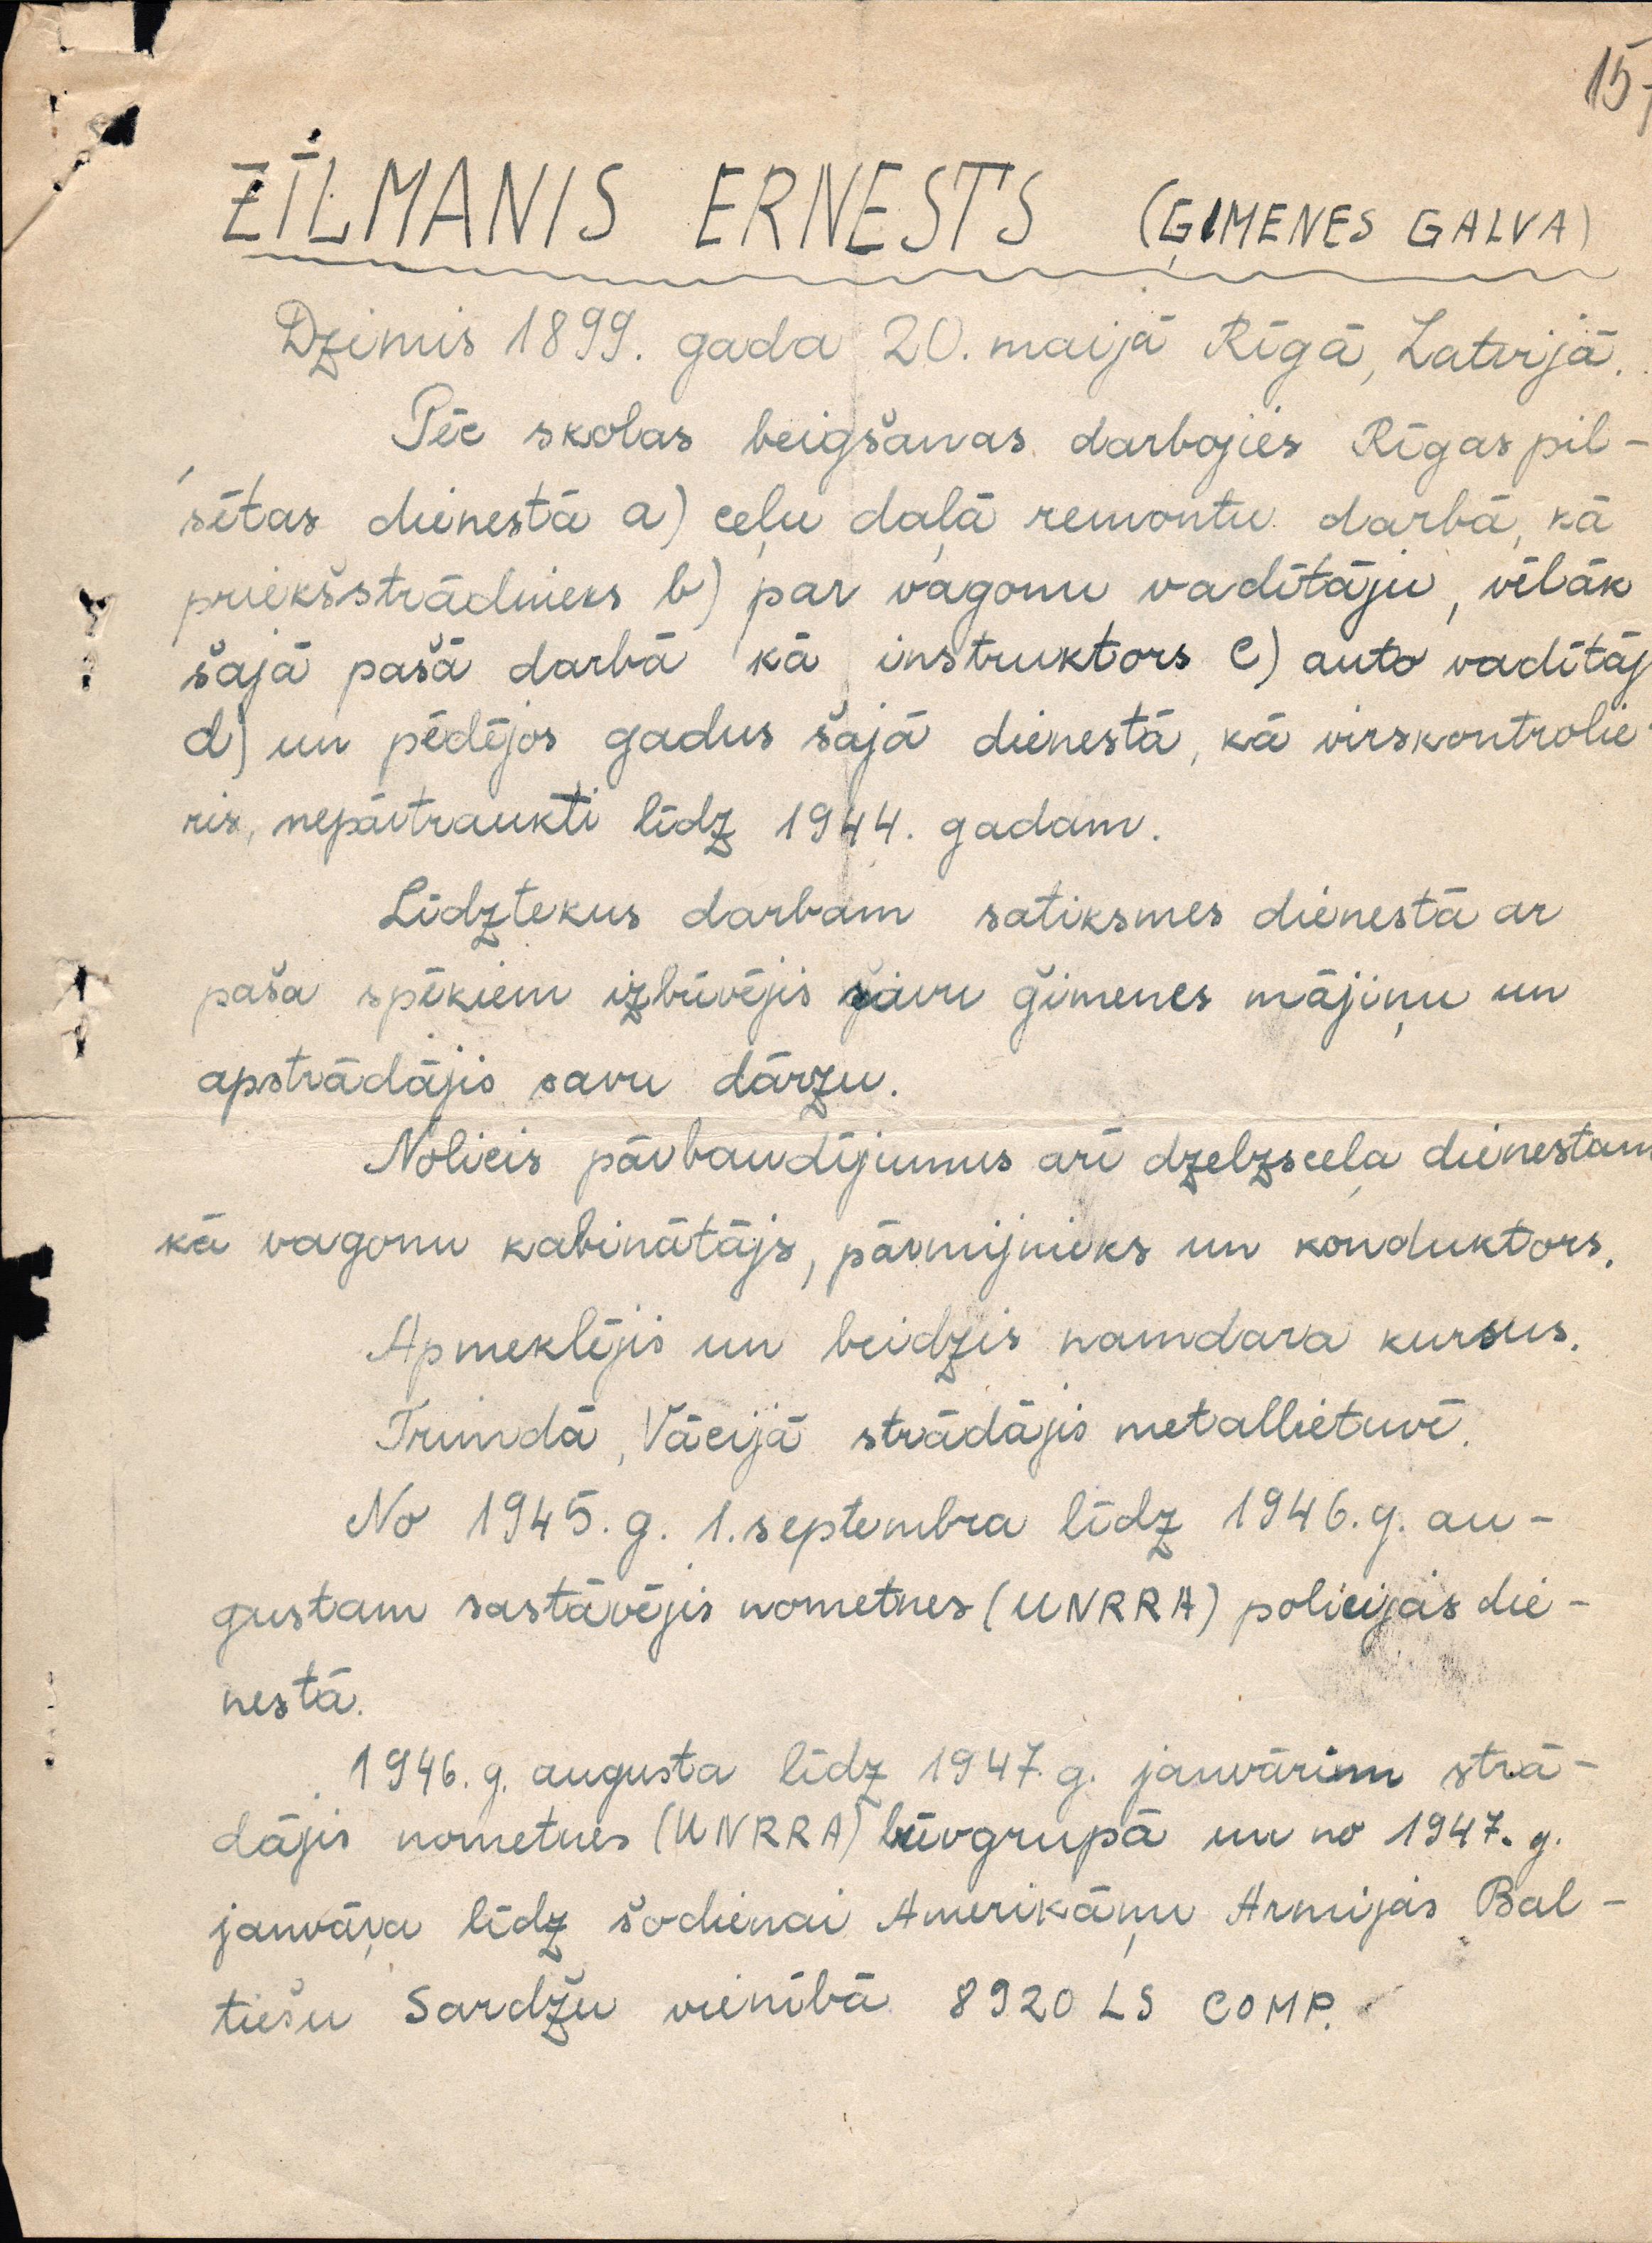 15
ZĪLMANIS ERNESTS (ĢIMENES GALVA)
Dzimis 1899. gada 20. maijā Rīgā, Latvijā.
Pēc skolas beigšanas darbojies Rīgas pil-
sētas dienestā a) ceļu daļā remontu darbā, kā
priekšstrādnieks b) par vagonu vadītāju, vēlāk
šajā pašā darbā kā instruktors c) auto vadītāj
d) un pēdējos gadus šajā dienestā, kā virskontrolie-
ris, nepārtraukti līdz 1944. gadam.
Līdztekus darbam satiksmes dienestā ar
paša spēkiem izbūvējis savu ģimenes mājiņu un
apstrādājis savu dārzu.
Nolicis pārbaudījumus arī dzelzsceļa dienestam
kā vagonu kabinātājs, pārmijnieks un konduktors.
Apmeklējis un beidzis namdara kursus.
Trimdā, Vācijā strādājis metallietuvē.
No 1945. g. 1. septembra līdz 1946. g. au-
gustam sastāvējis nometnes (UNRRA) policijas die-
nestā.
1946. g. augusta līdz 1947. g. janvārim strā-
dājis nometnes (UNRRA) būvgrupā un no 1947. g.
janvāŗa līdz šodienai Amerikāņu Armijas Bal-
tiešu Sardžu vienībā 8920 LS COMP.